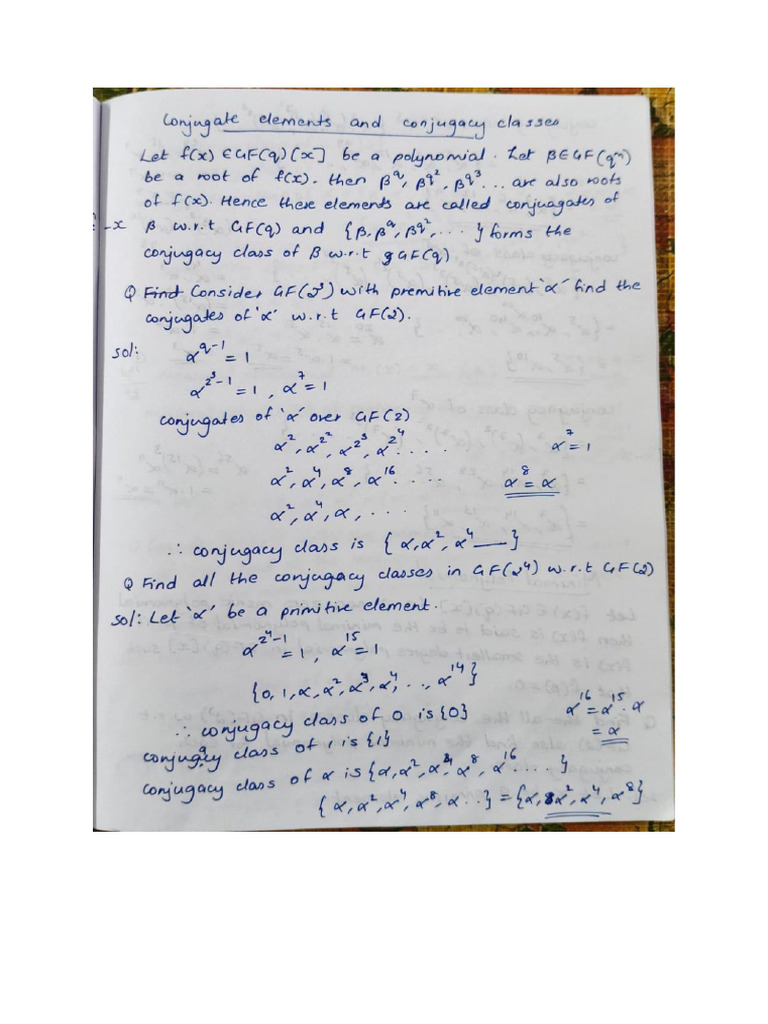 Conjugate elements and conjugacy classes
Let f(x) ∈ GF(q)[x] be a polynomial. Let β ∈ GF(qⁿ)
be a root of f(x). then β^q, β^q², β^q³ ... are also roots
of f(x). Hence there elements are called conjuagates of
β w.r.t GF(q) and {β, β^q, β^q², ....} forms the
-x
conjugacy class of β w.r.t GF(q)
Q Find Consider GF(2³) with premitive element 'α' find the
conjugates of 'α' w.r.t GF(2).
Sol: α^q-1 = 1
α^2³-1 = 1, α^7 = 1
conjugates of 'α' over GF(2)
α^2, α^2², α^2³, α^2⁴ ..... α^7 = 1
α^2, α^4, α^8, α^16 ..... α^8 = α
α^2, α^4, α, ....
∴ conjugacy class is {α, α^2, α^4 —}
Q Find all the conjugacy classes in GF(2⁴) w.r.t GF(2)
Sol: Let 'α' be a primitive element.
α^2⁴-1 = 1, α^15 = 1
{0, 1, α, α^2, α^3, α^4, .., α^14}
α^16 = α^15 . α
= α
∴ conjugacy class of 0 is {0}
conjugacy class of 1 is {1}
conjugacy class of α is {α, α^2, α^4, α^8, α^16 ....}
{α, α^2, α^4, α^8, α ..} = {α, α^2, α^4, α^8}